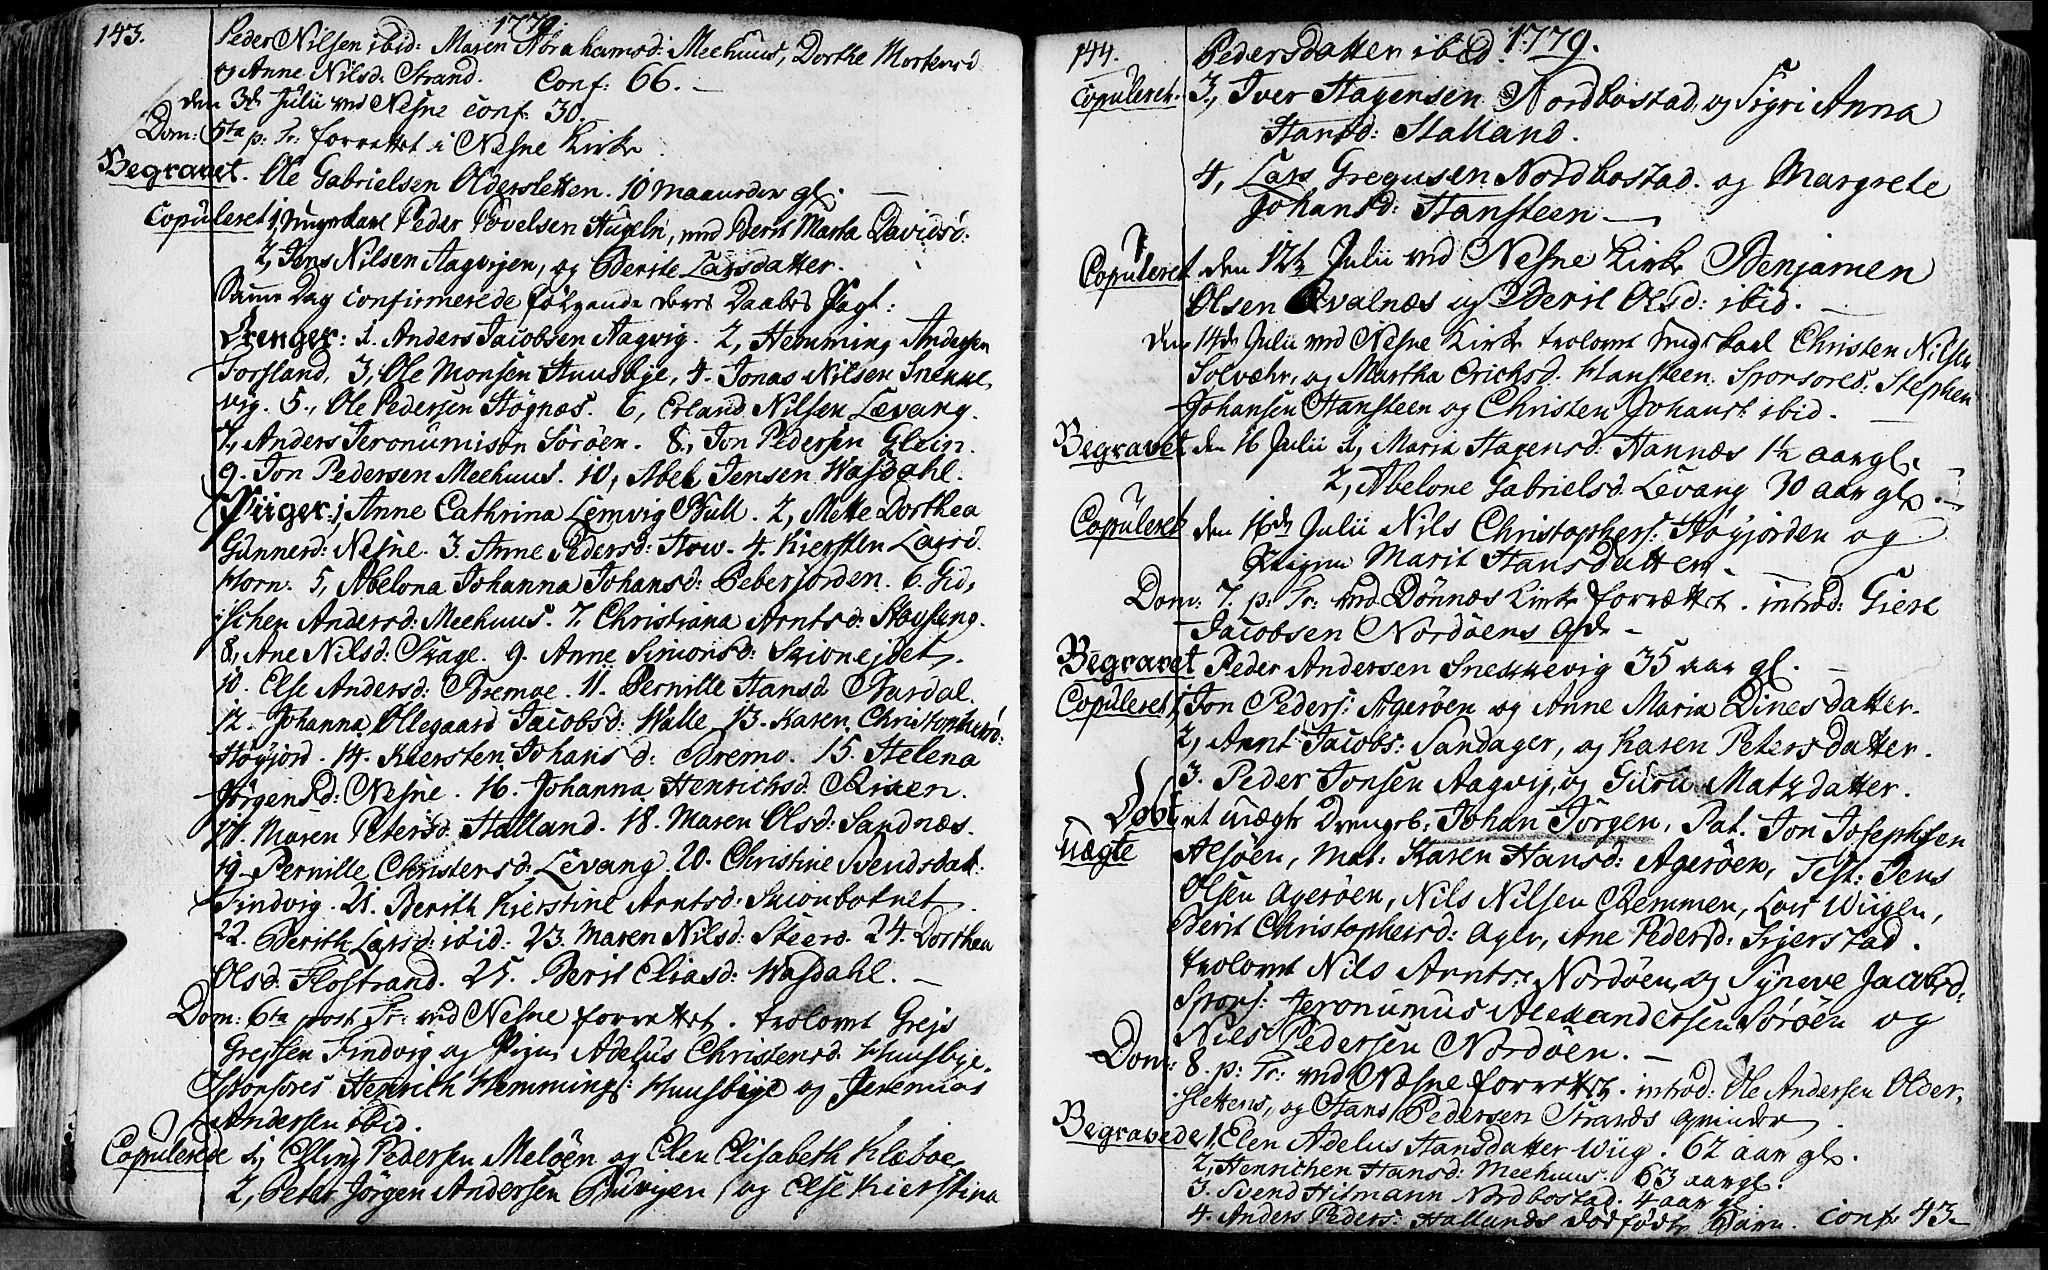 143. 1779.
Peder Nilsen ibid: Maren Abrahamsd: Meehuus, Dorthe Mortensd
og Anne Nilsd: Strand. Conf: 66. -
den 3de Julii ved Nesne conf: 30.
Dom: 5ta p: Tr: forrettet i Nesne Kirke.
Begravet. Ole Gabrielsen Oldersletten. 10 maaneder gl. -
Copuleret 1, Ungekarl Peder Povelsen Hugeln, med Berit Marta Davidsd:
2, Jens Nilsen Aagvigen, og Berite Larsdatter.
Samme Dag confirmerede følgende deres Daabes Pagt:
Drenger: 1. Anders Jacobsen Aagvig. 2, Hemming Andersen
Forsland, 3, Ole Monsen Huusbye, 4. Jonas Nilsen Snekke,
vig. 5., Ole Pedersen Høgnæs. 6, Erland Nilsen Levang.
7., Anders Jeronumison Sørøen. 8., Jon Pedersen Glein.
9. Jon Pedersen Meehuus. 10, Abel Jensen Wasdahl.
Piiger: 1, Anne Cathrina Lemvig Bull. 2, Mette Dorthea
Gunnerd: Nesne. 3. Anne Pedersd: How. 4. Kiersten Larsd.
Horn. 5, Abelona Johanna Johansd: Peberjorden. 6. Gid,
schen Andersd: Meehuus. 7. Christiana Arntsd: Hovsling.
8., Ane Nilsd: Skage. 9. Anne Simonsd: Skionejdet.
10. Else Andersd: Bremoe. 11. Pernille Hansd Bardal.
12. Johanna Ollegaard Jacobsd: Walle. 13. Karen Christophersd:
Høgjord. 14. Kiersten Johansd: Bremo. 15. Helena
Jørgensd: Nesne. 16. Johanna Henrichsd. Risen.
17. Maren Petersd. Halland. 18. Maren Olsd: Sandnæs.
19. Pernille Christensd: Levang. 20. Christine Svendsdat:
Findvig. 21. Berith Kierstine Arntsd: Skionbotnet.
22. Berith Larsd: ibid: 23. Maren Nilsd: Steero. 24. Dorthea
Olsd: Flostrand. 25. Berit Eliasd: Wasdahl. -
Dom: 6ta post Tr: ved Nesne forrettet. trolovet Grejs
Grejssen Findvig og Pigen Adelus Christensd. Huusbye.
Sponsores Henrich Hemmings: Huusbye og Jeremias
Andersen ibid.
Copulerede 1, Elling Pedersen Meløen og Elen Elisabeth Klæboe,
2, Peter Jørgen Andersen Buvigen og Else Kierstina
144. Pedersdatter ibid. 1779.
Copuleret. 3., Iver Hagensen Nordbostad og Sigri Anna
Hansd: Halland.
4, Lars Gregusen Nordbostad. og Margrete
Johansd: Hansteen -
Copuleret den 12te Julii ved Nesne Kirke Benjamen
Olsen Qvalnæs og Berit Olsd: ibid. -
den 14de Julii ved Nesne Kirke trolovet Ungekarl Christen Nilsen
Solvær, og Martha Erichsd. Hansteen. Sponsores: Stephen
Johansen Hansteen og Christen Johansen ibid.
Begravet den 16 Julii 1, Marit Hagensd: Hannæs 1½ aar gl.
2, Abelone Gabrielsd. Levang 30 aar gl. -
Copuleret den 16de Julii Nils Christophers: Høgjorden og
Pigen Marit Hansdatter.
Dom: 7. p: Tr: ved Dønnæs Kirke forrettet. introd: Giert
Jacobsen Nordøens Qde -
Begravet Peder Andersen Snekkevig 35 aar gl. -
Copuleret 1, Jon Peders: Agerøen og Anne Maria Dinesdatter.
2, Arnt Jacobs: Sandager, og Karen Petersdatter.
3. Peder Jonsen Aagvig, og Guru Matzdatter.
Døbt et uægte Drengeb: Johan Jørgen, Pat. Jon Josephsen
uægte Alsøen, Mat: Karen Hansd: Agerøen, Test: Jens
Olsen Agerøen, Nils Nilsen Remmen, Lars Wiigen,
Berit Christophersd: Ager, Ane Pedersd: Skjerstad.
trolovet Nils Arntsen Nordøen, og Syneve Jacobsd.
Spons: Jeronumus Alexandersen Sørøen og
Niels Pedersen Nordøen. -
Dom: 8. p: Tr: ved Nesne forrettet. introd: Ole Andersen Older,
slettens, og Hans Pedersen Strands qvinder.
Begravede 1. Elen Adelus Hansdatter Wiig. 62 aar gl.
2, Henrichen Hansd: Meehuus. 63 aar gl:
3. Svend Hitmann Nordbostad. 4 aar gl.
4. Anders Peders: Hallands dødfødte Barn. conf: 43.